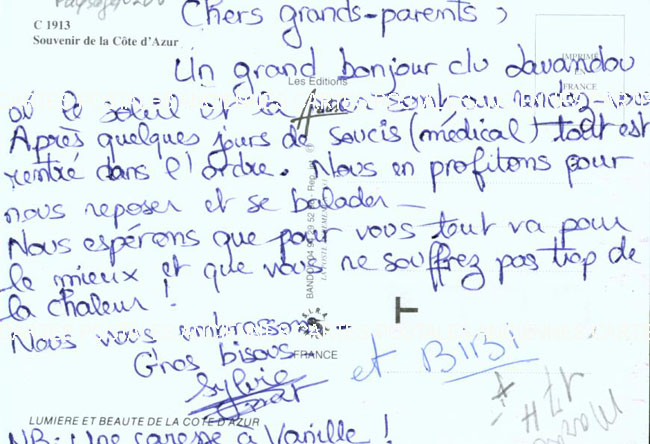 C 1913
Souvenir de la Côte d'Azur
Chers grands-parents,
Un grand bonjour du Lavandou
IMPRIMÉ
EN
FRANCE
Les Editions
où le soleil et la mer sont au rendez-vous
Après quelques jours de soucis (médical) tout est
rentré dans l'ordre. Nous en profitons pour
nous reposer et se balader -
Nous espérons que pour vous tout va pour
le mieux et que vous ne souffrez pas trop de
la chaleur !
Nous vous embrassons
Gros bisous
FRANCE
et BiBi
Sylvie
LUMIERE ET BEAUTE DE LA COTE D'AZUR
NB: Une caresse à Vanille !